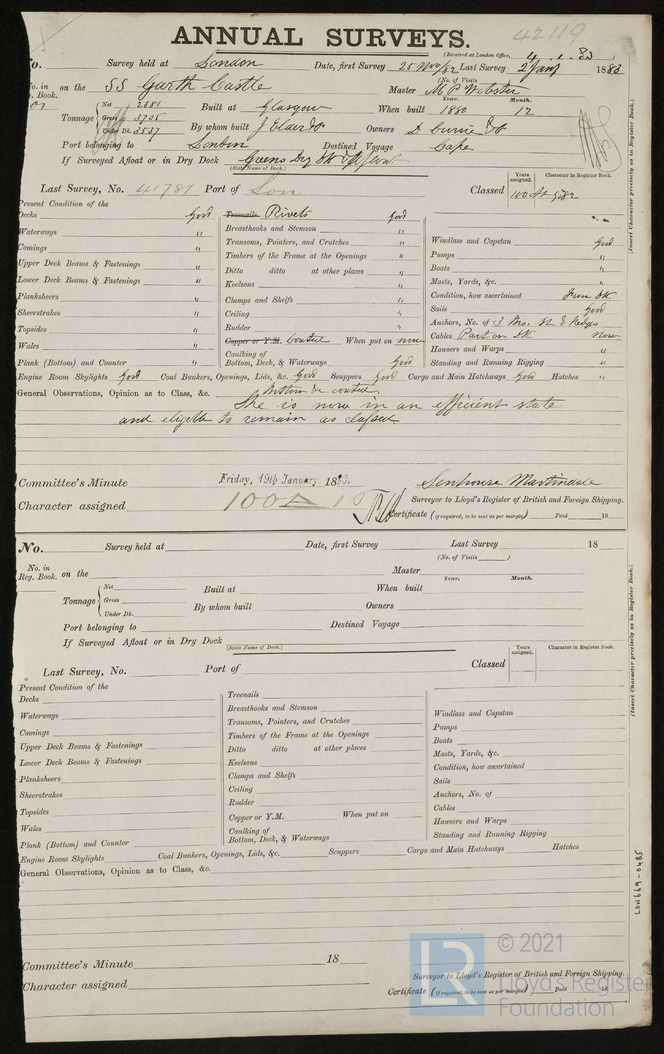 42119
ANNUAL SURVEYS.
(Received at London Office,
No. Survey held at London Date, first Survey 25 Nov/82 Last Survey 2 Jany 1883
(No. of Visits )
No. in Reg. Book. on the SS Garth Castle Master M P Webster
Tonnage Net 2381 Gross 3705 Under Dk. 3537 Built at Glasgow When built Year. 1880 Month. 12
By whom built J Elder & Co Owners D Currie & Co
Port belonging to London Destined Voyage Cape
If Surveyed Afloat or in Dry Dock Greens Dry Dk & Afloat
(State Name of Dock.)
Last Survey, No. 41787 Port of Lon Classed Years assigned. Character in Register Book.
(Insert Character precisely as in Register Book.)
Present Condition of the
Decks Good
Waterways "
Comings "
Upper Deck Beams & Fastenings "
Lower Deck Beams & Fastenings "
Planksheers "
Sheerstrakes "
Topsides "
Wales "
Plank (Bottom) and Counter "
Treenails Rivets Good
Breasthooks and Stemson "
Transoms, Pointers, and Crutches "
Timbers of the Frame at the Openings "
Ditto ditto at other places "
Keelsons "
Clamps and Shelfs "
Ceiling "
Rudder "
Copper or Y.M. Coated When put on now
Caulking of
Bottom, Deck, & Waterways Good
Windlass and Capstan Good
Pumps "
Boats "
Masts, Yards, &c. "
Condition, how ascertained From Dk
Sails Good
Anchors, No. of 3 Brs. St & Kedges
Cables Part on Dk now
Hawsers and Warps "
Standing and Running Rigging "
Engine Room Skylights Good Coal Bunkers, Openings, Lids, &c. Good Scuppers Good Cargo and Main Hatchways Good Hatches "
General Observations, Opinion as to Class, &c. Bottom coated.
She is now in an efficient state
and eligible to remain as classed
Committee's Minute Friday, 19th January, 1883.
Senhouse Martindale
Character assigned 100A
Surveyor to Lloyd's Register of British and Foreign Shipping.
Certificate (if required, to be sent as per margin) Paid 18
No. Survey held at Date, first Survey Last Survey 18
(No. of Visits )
No. in Reg. Book. on the Master
Tonnage Net Gross Under Dk. Built at When built Year. Month.
By whom built Owners
Port belonging to Destined Voyage
If Surveyed Afloat or in Dry Dock
(State Name of Dock.)
Last Survey, No. Port of Classed Years assigned. Character in Register Book.
(Insert Character precisely as in Register Book.)
Present Condition of the
Decks
Waterways
Comings
Upper Deck Beams & Fastenings
Lower Deck Beams & Fastenings
Planksheers
Sheerstrakes
Topsides
Wales
Plank (Bottom) and Counter
Treenails
Breasthooks and Stemson
Transoms, Pointers, and Crutches
Timbers of the Frame at the Openings
Ditto ditto at other places
Keelsons
Clamps and Shelfs
Ceiling
Rudder
Copper or Y.M. When put on
Caulking of
Bottom, Deck, & Waterways
Windlass and Capstan
Pumps
Boats
Masts, Yards, &c.
Condition, how ascertained
Sails
Anchors, No. of
Cables
Hawsers and Warps
Standing and Running Rigging
Engine Room Skylights Coal Bunkers, Openings, Lids, &c. Scuppers Cargo and Main Hatchways Hatches
General Observations, Opinion as to Class, &c.
LON669-0485
Committee's Minute 18
Character assigned
Surveyor to Lloyd's Register of British and Foreign Shipping.
Certificate (if required, to be sent as per margin) Paid 18
LR © 2021
Lloyd's Register
Foundation